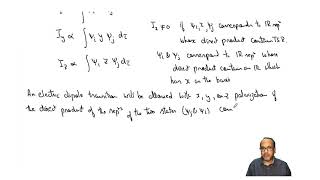 I_y ∝ ∫ ψ_i y ψ_j dτ
I_z ∝ ∫ ψ_i z ψ_j dτ
I_x ≠ 0 if ψ_i, x, ψ_j correspond to IR rep^ns
whose direct product contains TSR.
ψ_i & ψ_j correspond to IR rep^ns whose
direct product contains an IR which
has x in the basis
An electric dipole transition will be allowed with x, y, or z polarization if
the direct product of the rep^ns of the two states (ψ_i & ψ_j) con